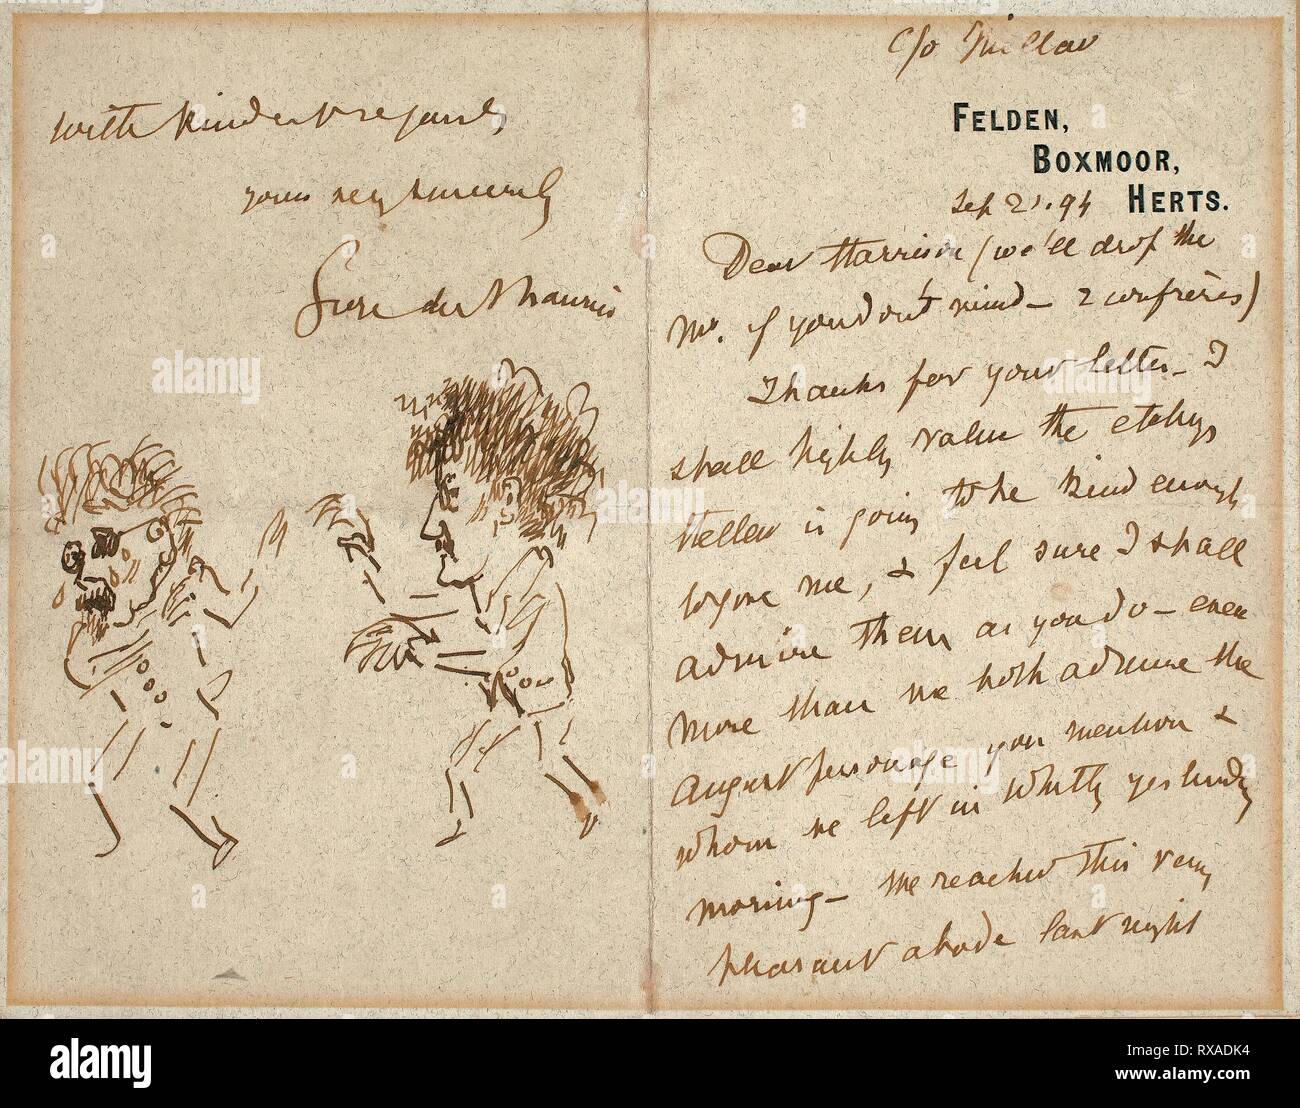 c/o Mellor
FELDEN,
BOXMOOR,
HERTS.
Sep 21. 94
Dear Harrison (we'll drop the
Mr. if you don't mind – 2 confrères)
Thanks for your letter – I
shall highly value the etchings
Mellor is going to be kind enough
to give me, & feel sure I shall
admire them as you do – even
more than we both admire the
august personage you mention &
whom we left in Whitby yesterday
morning – We reached this very
pleasant abode last night
with kindest regards
yours very sincerely
George du Maurier
alamy
alamy
alamy
alamy
alamy
a
a
a
a
a
alamy
Image ID: RXADK4
www.alamy.com